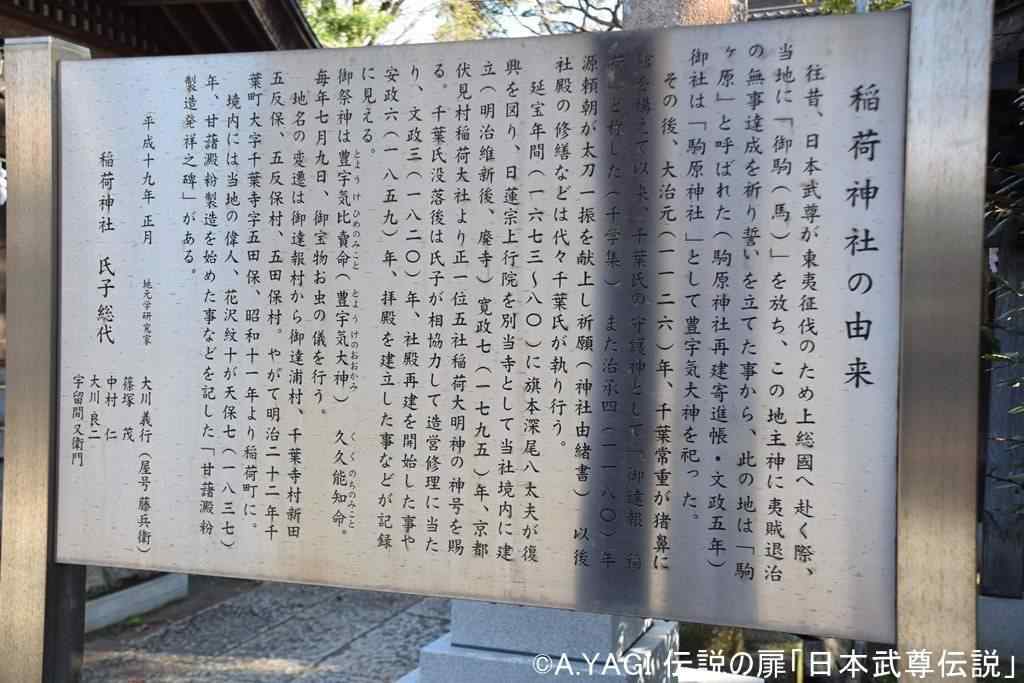 稲荷神社の由来
往昔、日本武尊が東夷征伐のため上総國へ赴く際、
当地に「御駒(馬)」を放ち、この地主神に夷賊退治
の無事達成を祈り誓いを立てた事から、此の地は「駒
ヶ原」と呼ばれた(駒原神社再建寄進帳・文政五年)
御社は「駒原神社」として豊宇気大神を祀った。
その後、大治元(一一二六)年、千葉常重が猪鼻に
を構えて以来、千葉氏の守護神として「御達報稲
荷」と称した(千学集)また治承四(一一八〇)年
源頼朝が太刀一振を献上し祈願(神社由緒書)以後
社殿の修繕などは代々千葉氏が執り行う。
延宝年間(一六七三~八〇)に旗本深尾八太夫が復
興を図り、日蓮宗上行院を別当寺として当社境内に建
立(明治維新後、廃寺)寛政七(一七九五)年、京都
伏見村稲荷大社より正一位五社稲荷大明神の神号を賜
る。千葉氏没落後は氏子が相協力して造営修理に当た
り、文政三(一八二〇)年、社殿再建を開始した事や
安政六(一八五九)年、拝殿を建立した事などが記録
に見える。
御祭神は豊宇気比賣命(とようけひめのみこと)(豊宇気大神(とようけのおおかみ))久久能知命(くくのちのみこと)。
毎年七月九日、御宝物お虫の儀を行う。
地名の変遷は御達報村から御達浦村、千葉寺村新田
五反保、五反保村、五田保村。やがて明治二十二年千
葉町大字千葉寺字五田保、昭和十一年より稲荷町に。
境内には当地の偉人、花沢紋十が天保七(一八三七)
年、甘藷澱粉製造を始めた事などを記した「甘藷澱粉
製造発祥之碑」がある。
平成十九年 正月
地元学研究家 大川義行(屋号藤兵衛)
稲荷神社 氏子総代
篠塚 茂
中村 仁
大川良二
宇留間又衛門
©A.YAGI 伝説の扉「日本武尊伝説」